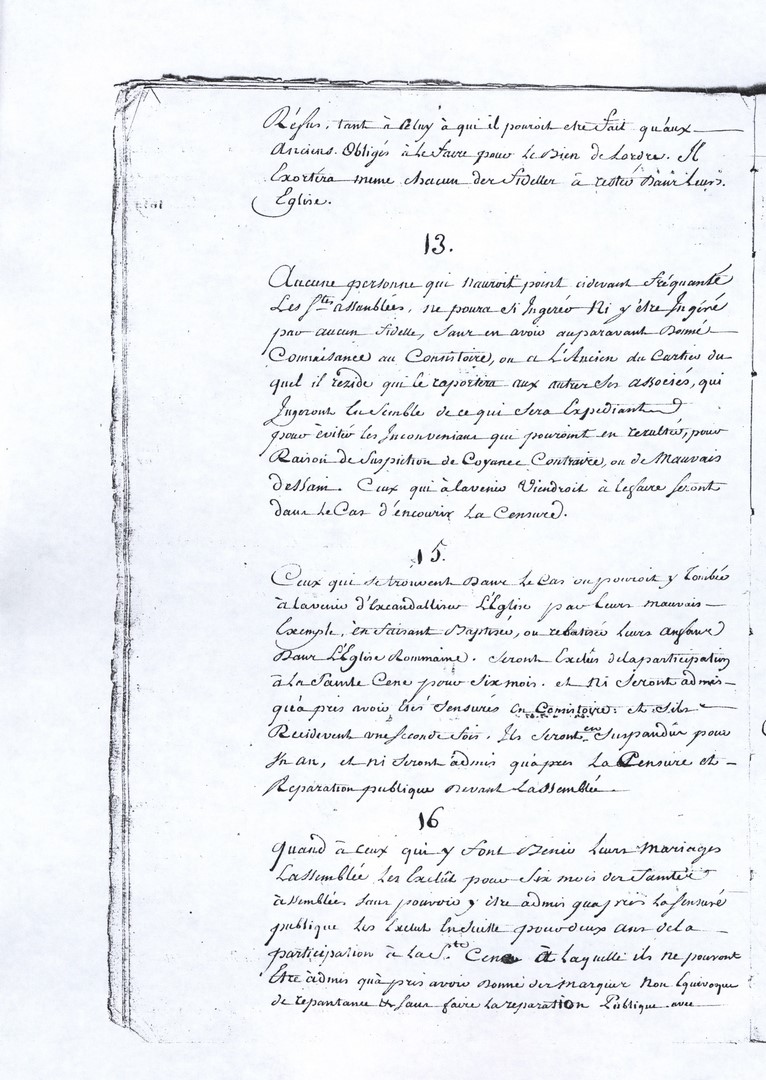 Réfus, tant à Celuy à qui il pouroit etre fait qu'aux
Anciens Obligés à le faire pour le Bien de Lordre. Il
Exortéra meme chacun des fideller à rester Dans Leurs
Eglise.
13.
Aucune personne qui nauroit point cidevant fréquanté
Les Stes assamblées, ne poura si Ingerér Ni y étre Ingéré
par aucun fidelle, sans en avoir auparavant Donné
Connaisance au Consistoire, ou a L'Ancien du Cartier du
quel il rezide qui le raportéra aux autres Ses associés, qui
Jugeront Ensemble de ce qui Sera Expediant
pour évitér les Inconveniane qui pouroint en rezultér, pour
Raison de Suspiction de Coyance Contraire, ou de Mauvais
dessain. Ceux qui àlavenir Viendroit à lefaire seront
dans le Cas d'encourir La Censure.
15.
Ceux qui se trouvent Dans Le Cas ou pouroit y Tombér
àlavenir d'Excandalliser L'Eglise par Leurs mauvais
Exemple, en faisant Baptisér, ou rebatisér Leurs anfans
Dans L'Eglise Rommaine. Seront Exclús delaparticipation
à La Sainte Cene pour Six mois. et Ni Seront admis
qúa prés avoir Etés Sensurés En Consistoire: et Sils
Recidivent une seconde fois. Ils seront en Suspandús pour
Un an, et ni Seront admis qúaprés La Censure et
Reparation publique Devant Lassemblée
16
Quand à Ceux qui y font Benir Leurs Mariages
Lassemblée Les Exclût pour Six mois des Saintes
assemblées sans pouvoir y étre admis quaprés La sensure
publique Les Exclut Ensuitte pour deux ans dela
participation à La Ste Cene à Laquelle ils ne pouront
Etre admis qúà prés avoir Donné des marques Non Equivoque
de repantance & sans faire La reparation Publique avec